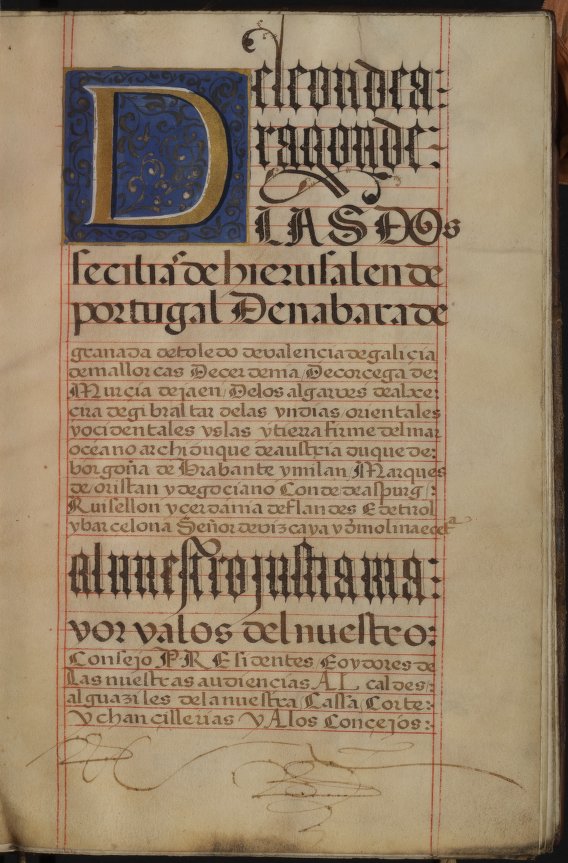 Del con de a:
ragon de:
LAS DOS
secilias de hierusalen de
portugal De nabara de
granada de toledo de valencia de galicia
de mallorcas De cerdema / De corcega de:
Murcia de jaen / De los algarves de alxe:
cira de gibraltar de las yndias orientales
y ocidentales yslas y tierra firme del mar
oceano archiduque de austria duque de:
borgoña de brabante y milan / Marques
de / oristan y de gociano Conde de aspurg /:
Ruisellon y cerdania de flandes E de tirol
y barcelona Señor de vizcaya y d molina ecetª
al nuestro justicia ma:
yor y a los del nuestro:
Consejo PREsidentes E oydores de
Las nuestras audiencias AL caldes /:
alguaziles de la nuestra / Cassa / Corte:
y chancillerias y Alos Concejos: